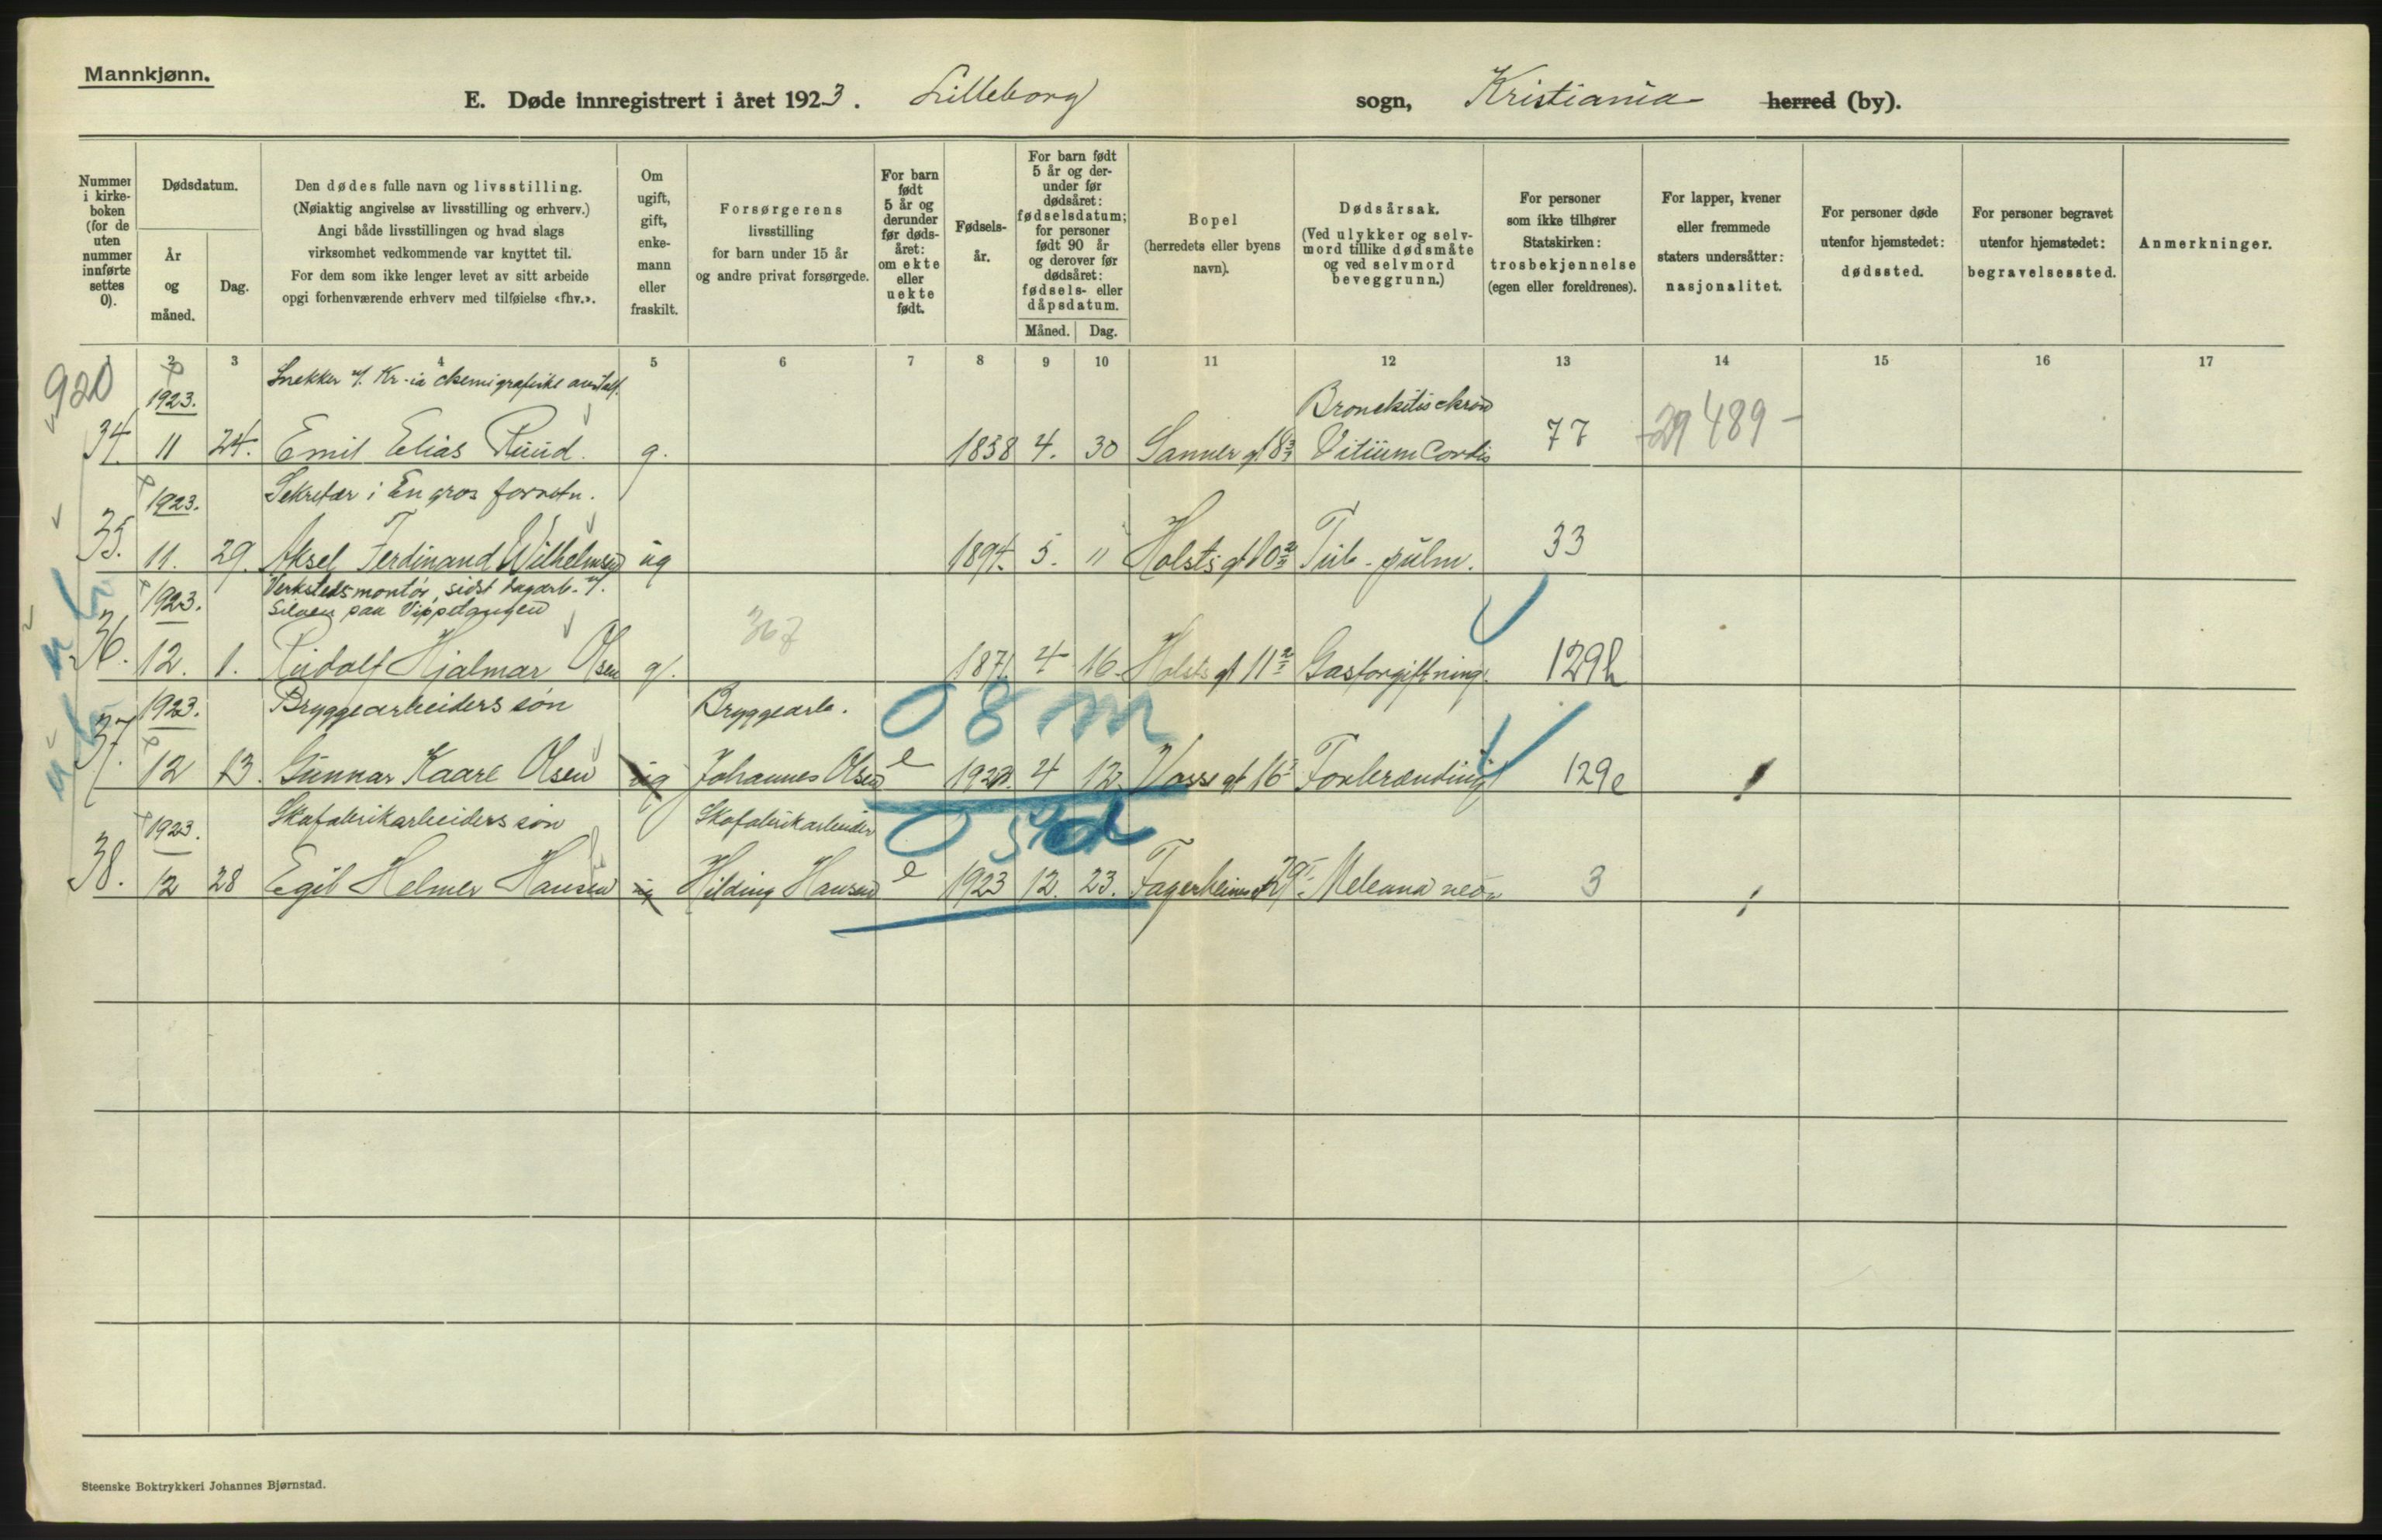 Mannkjønn.
E. Døde innregistrert i året 1923. Lilleborg sogn, Kristiania herred (by).
Nummer i kirkeboken (for de uten nummer innførte settes 0).
Dødsdatum.
År og måned.
Dag.
Den dødes fulle navn og livsstilling.
(Nøiaktig angivelse av livsstilling og erhverv.)
Angi både livsstillingen og hvad slags
virksomhet vedkommende var knyttet til.
For dem som ikke lenger levet av sitt arbeide
opgi forhenværende erhverv med tilføielse «fhv.».
Om ugift, gift, enkemann eller fraskilt.
Forsørgerens
livsstilling
for barn under 15 år
og andre privat forsørgede.
For barn født 5 år og derunder før dødsåret: om ekte eller uekte født.
Fødselsår.
For barn født 5 år og derunder før dødsåret: fødselsdatum; for personer født 90 år og derover før dødsåret: fødsels- eller dåpsdatum.
Måned. Dag.
Bopel
(herredets eller byens
navn).
Dødsårsak.
(Ved ulykker og selvmord tillike dødsmåte og ved selvmord beveggrunn.)
For personer
som ikke tilhører
Statskirken:
trosbekjennelse
(egen eller foreldrenes).
For lapper, kvener
eller fremmede
staters undersåtter:
nasjonalitet.
For personer døde
utenfor hjemstedet:
dødssted.
For personer begravet
utenfor hjemstedet:
begravelsessted.
Anmerkninger.
1 2 3 4 5 6 7 8 9 10 11 12 13 14 15 16 17
920
1923. Snekker v/. Kr-ia chemigrafiske anstalt. Bronchitis chron
34. 11 24. Emil Elias Ruud. g. 1838 4. 30 Sanner gt 8 3/3 Vitium Cordis 77 29489 -
1923. Sekretær i En gros forretn.
35. 11. 29. Aksel Ferdinand Wilhelmsen ug 1894. 5. 11 Holsts gt 10 Tub. pulm. 33
1923. Verkstedsmontør, sidst lagarb. v/.
Siloen paa Vippetangen
367
36. 12. 1. Rudolf Hjalmar Olsen g. 1871. 4 16. Holsts gt 11 Gasforgiftning. 129h
1923. Bryggearbeiders søn Bryggearb. 0 8 m
37. 12 13. Gunnar Kaare Olsen ug Johannes Olsen e 1923. 4 12. Voss gt 16 Forbrænding 129e
1923. Skofabrikarbeiders søn Skofabrikarbeider 0 5 d
38. 12 28 Egil Helmer Hansen ug Hilding Hansen e 1923 12. 23. Fagerheims gt Meleana neo- 3
Steenske Boktrykkeri Johannes Bjørnstad.